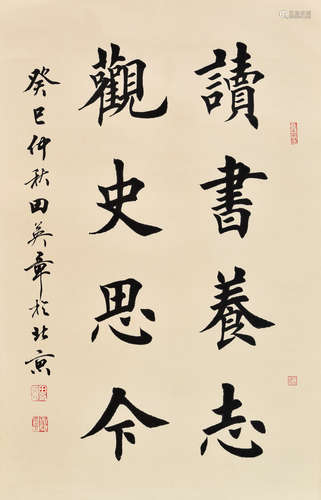 讀書養志
觀史思今
癸巳仲秋田英章於北京